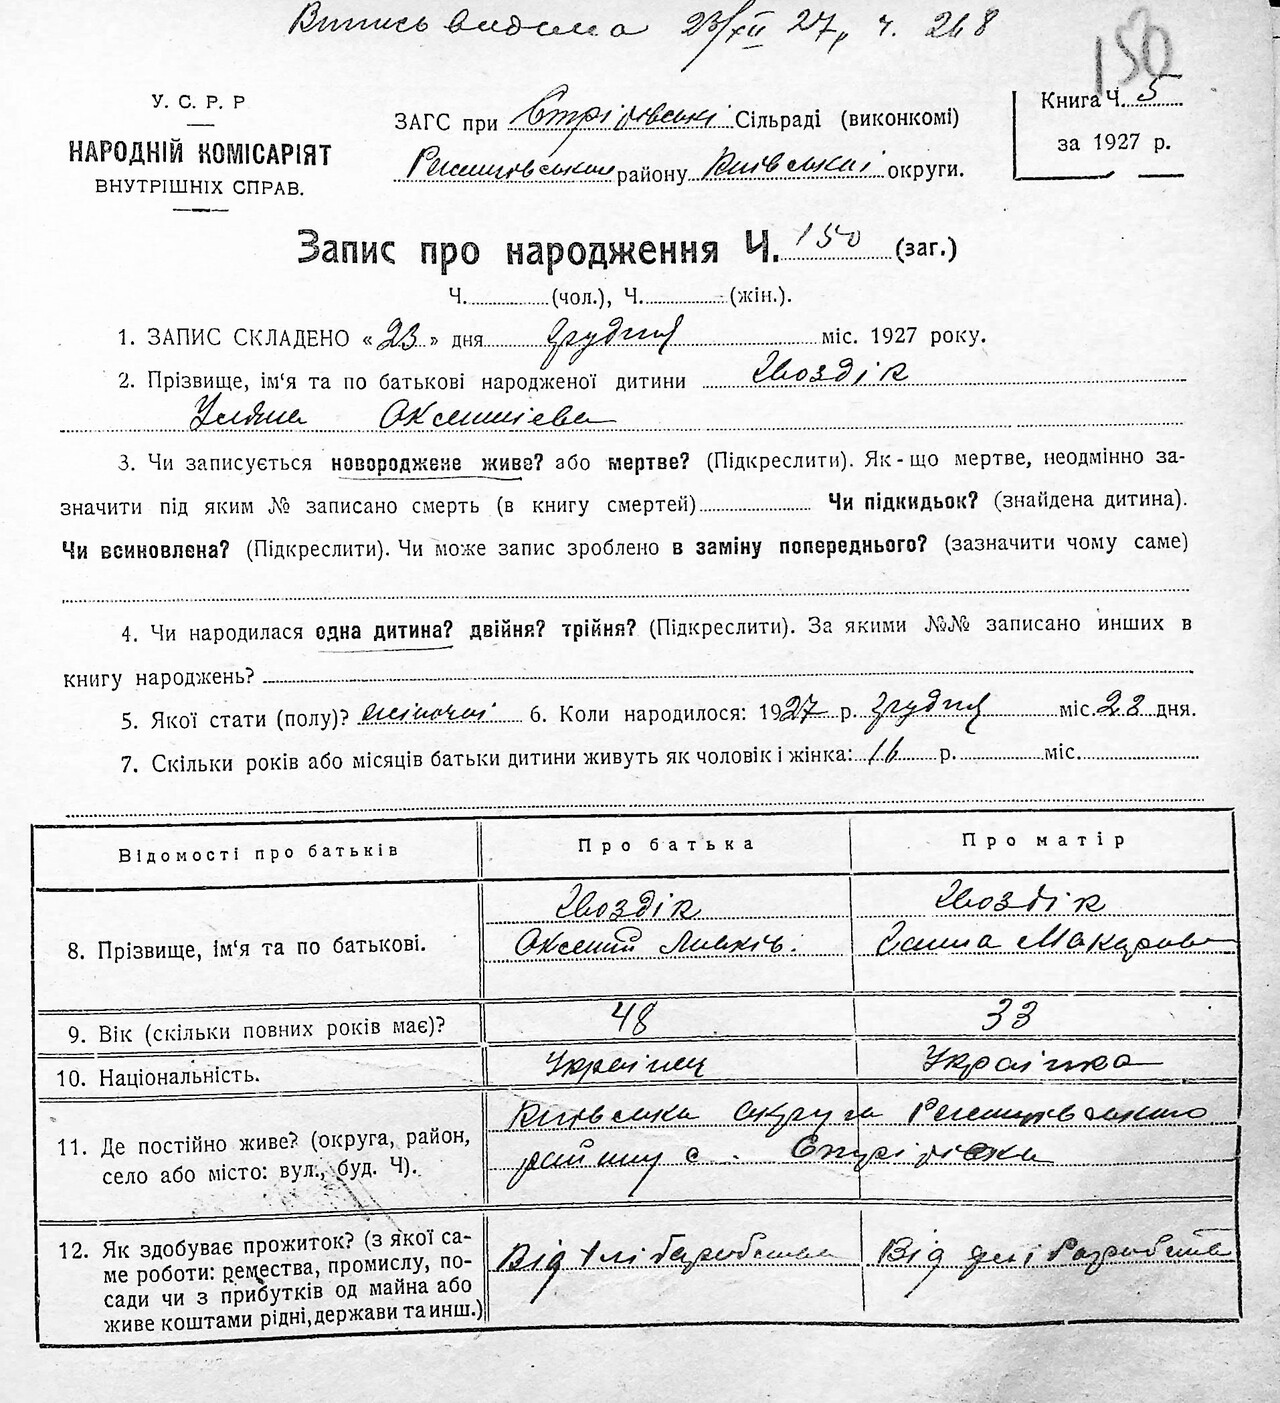 Випись видана 23/XII 27 р. ч. 268
150
У. С. Р. Р
НАРОДНІЙ КОМІСАРІЯТ
ВНУТРІШНІХ СПРАВ.
ЗАГС при Стрітівські Сільраді (виконкомі)
Ржищівськім району Київської округи.
Книга Ч. 5
за 1927 р.
Запис про народження Ч. 150 (заг.)
Ч. (чол.), Ч. (жін.).
1. ЗАПИС СКЛАДЕНО «23» дня грудня міс. 1927 року.
2. Прізвище, ім‘я та по батькові народженої дитини Гвоздік
Уляна
3. Чи записується новороджене живе? або мертве? (Підкреслити). Як-що мертве, неодмінно за-
значити під яким № записано смерть (в книгу смертей) Чи підкидьок? (знайдена дитина).
Чи всиновлена? (Підкреслити). Чи може запис зроблено в заміну попереднього? (зазначити чому саме)
4. Чи народилася одна дитина? двійня? трійня? (Підкреслити). За якими №№ записано инших в
книгу народжень?
5. Якої стати (полу)? жіночої 6. Коли народилося: 1927 р. грудня міс. дня.
7. Скільки років або місяців батьки дитини живуть як чоловік і жінка: 16 р. міс.
Відомості про батьків
Про батька
Про матір
8. Прізвище, ім‘я та по батькові.
Гвоздік
Оксентій
Гвоздік
Ганна Макарова
9. Вік (скільки повних років має)?
48
33
10. Національність.
Українец
Українка
11. Де постійно живе? (округа, район,
село або місто: вул., буд. Ч).
Київська округа Ржищівського
району с.
12. Як здобуває прожиток? (з якої са-
ме роботи: ремества, промислу, по-
сади чи з прибутків од майна або
живе коштами рідні, держави та инш.)
Від хліборобства
Від хліборобства